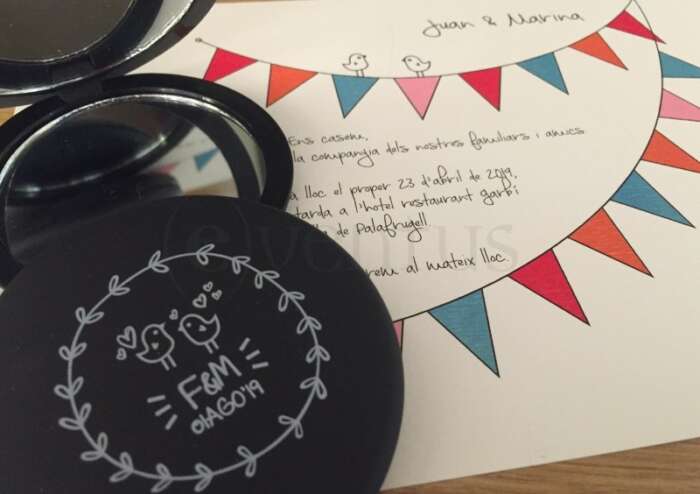 Juan & Marina
Ens casem,
la companyia dels nostres familiars i amics
a lloc el proper 23 d'abril de 2019,
tarda a l'hotel restaurant garbí
de Palafrugell
rem al mateix lloc.
(e)ventus
F&M
01AGO'19